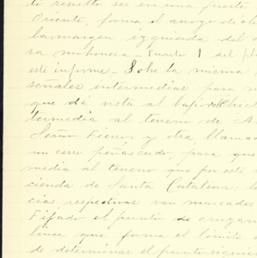 to resultó ser en una puente
Oriente, forma el arroyo di
la margen izquierda del
va mohonera Puente 1 del pl
este informe. Sobre la misma
señales intermedias para
que dé vista al
termedia al terreno de A
Señor y otra llamad
un cerro peñascoso, para que
media al terreno que por este
cienda de Santa Catalina. L
cias respectivas van marcadas
Fijado el punto de
línea que forma el límite
de determinar el punto